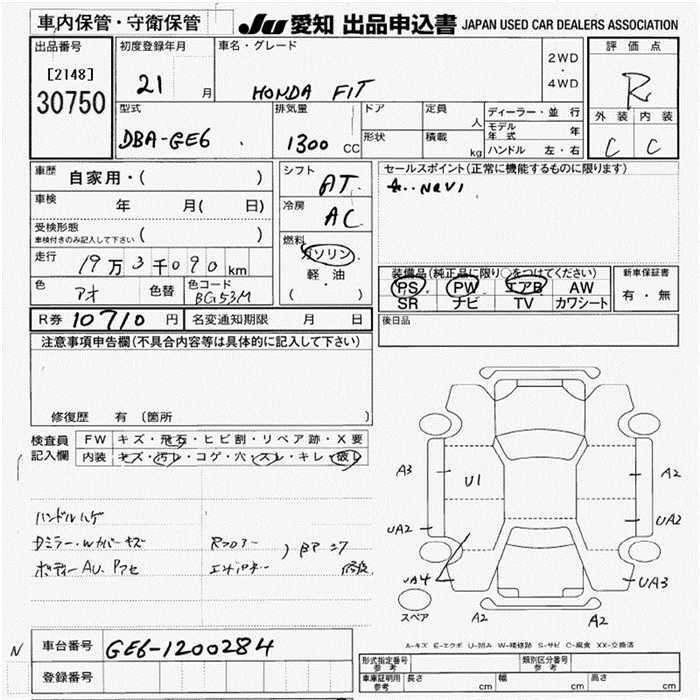 車内保管・守衛保管
JU 愛知 出品申込書 JAPAN USED CAR DEALERS ASSOCIATION
出品番号
[2148]
30750
初度登録年月
21 月
車名・グレード
HONDA FIT
2WD
・
4WD
評価点
R
外装 内装
C C
型式
DBA-GE6
排気量
1300 CC
ドア
形状
定員 人
積載 kg
ディーラー・並行
モデル年式 年
ハンドル 左・右
車歴 自家用・( )
車検 年 月( 日)
受検形態
車検付きのみ記入して下さい ( )
走行 19万3千090km
色 アオ 色替 色コード BG53M
シフト AT
冷房 AC
燃料
ガソリン
軽・油
( )
セールスポイント(正常に機能するものに限ります)
NAVI
装備品(純正品に限り○をつけてください)
PS PW エアB AW
SR ナビ TV カワシート
新車保証書
有・無
R券 10710 円 名変通知期限 月 日
後日品
注意事項申告欄(不具合内容等は具体的に記入して下さい)
修復歴 有 (箇所 )
検査員
記入欄
FW キズ・飛石・ヒビ割・リペア跡・X要
内装 キズ・汚レ・コゲ・穴・スレ・キレ・破レ
ハンドルハゲ
Dミラー・Wカバーキズ Rフロアー
ボディーAU.
A3 U1 A2
UA2 UA2
UA4 UA3
スペア A2 A2
A-キズ E-エクボ U-凹み W-補修跡 S-サビ C-腐食 XX-交換済
N
車台番号 GE6-1200284
登録番号
形式指定番号 参考
類別区分番号 参考
車庫証明用 参考 長さ cm 幅 cm 高さ cm